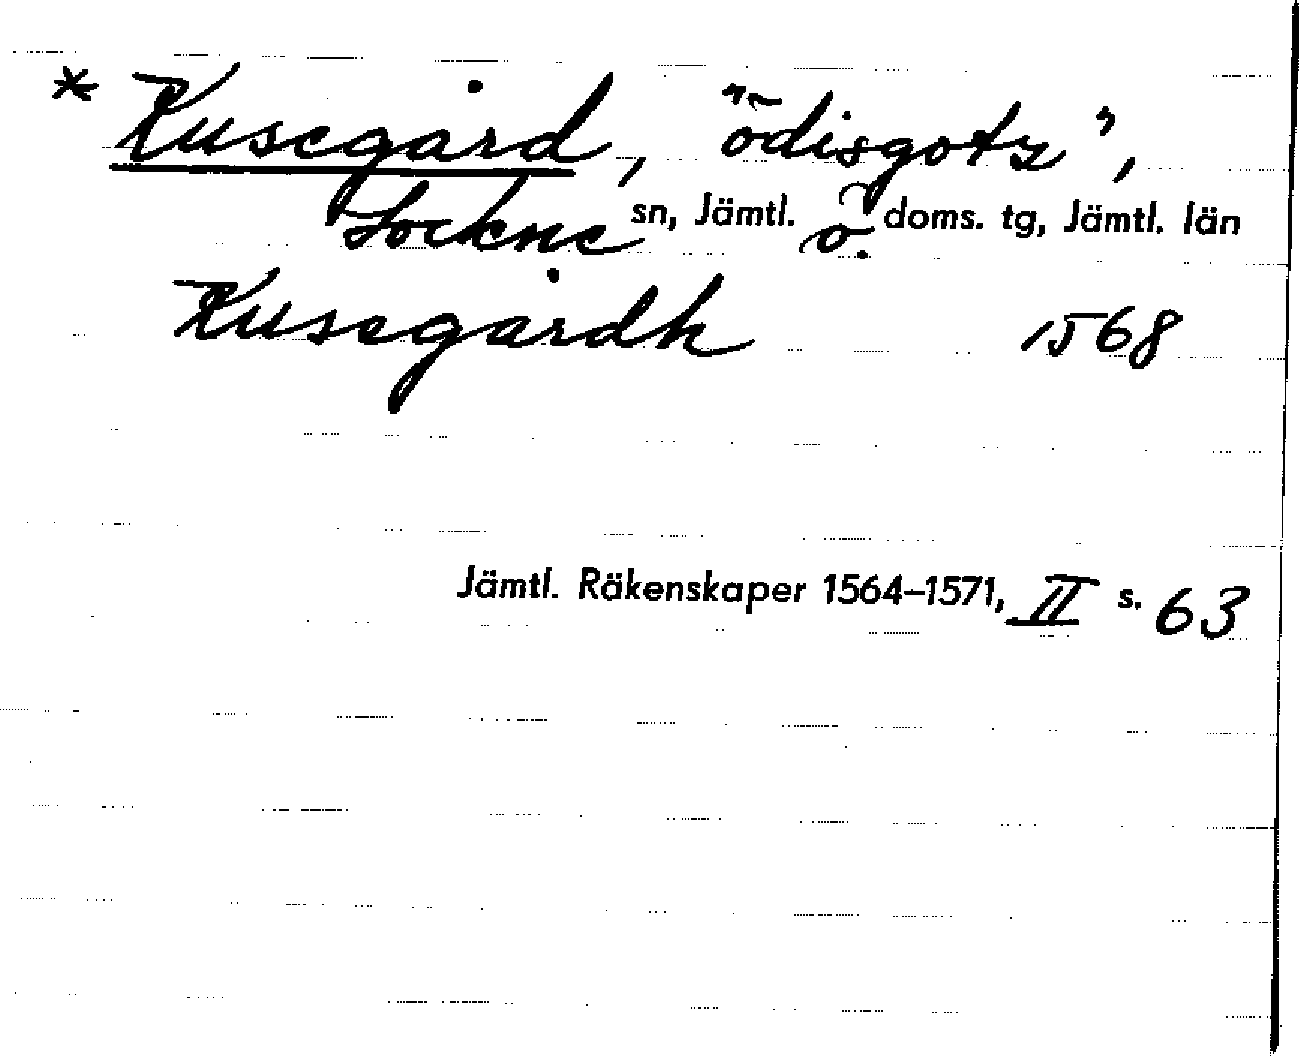 * Kusegård, "ödisgotz",
Lockne sn, Jämtl. ö. doms. tg, Jämtl. län
Kusegårdh 1568
Jämtl. Räkenskaper 1564–1571, II s. 63